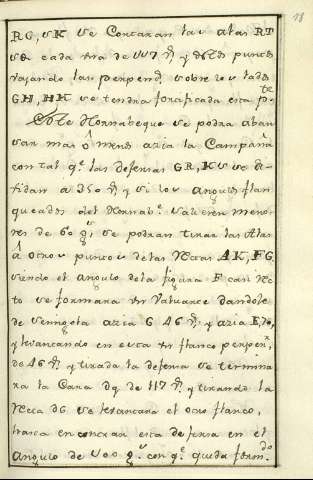 18
RG, sK se Cortaran las alas RT
cada de 117 y de estos puntos
vajando las perpend.s sobre los lados
GH, HK se tendra fortificada esta p.te
Este Hornabeque se podra aban
zar mas ô menos azia la Campaña
con tal q.e las defensas GR, KV se
midan a 350 y si los angulos flan
queados del Hornab.e salieren meno
res de 60 g.s se podran tirar las Alas
â otros puntos delas Rectas AK, FG,
siendo el angulo dela figura F can
to se formara dandole
de gola azia G 46 y azia E, 70,
y levantando en esta flanco perpen.r
de 46 y tirada la defensa se termina
ra la Cara dq de 117 y tirando la
Recta dG se levantara el otro flanco,
hasta encontrar esta defensa en el
angulo de 100 g.s con q.e queda form.do